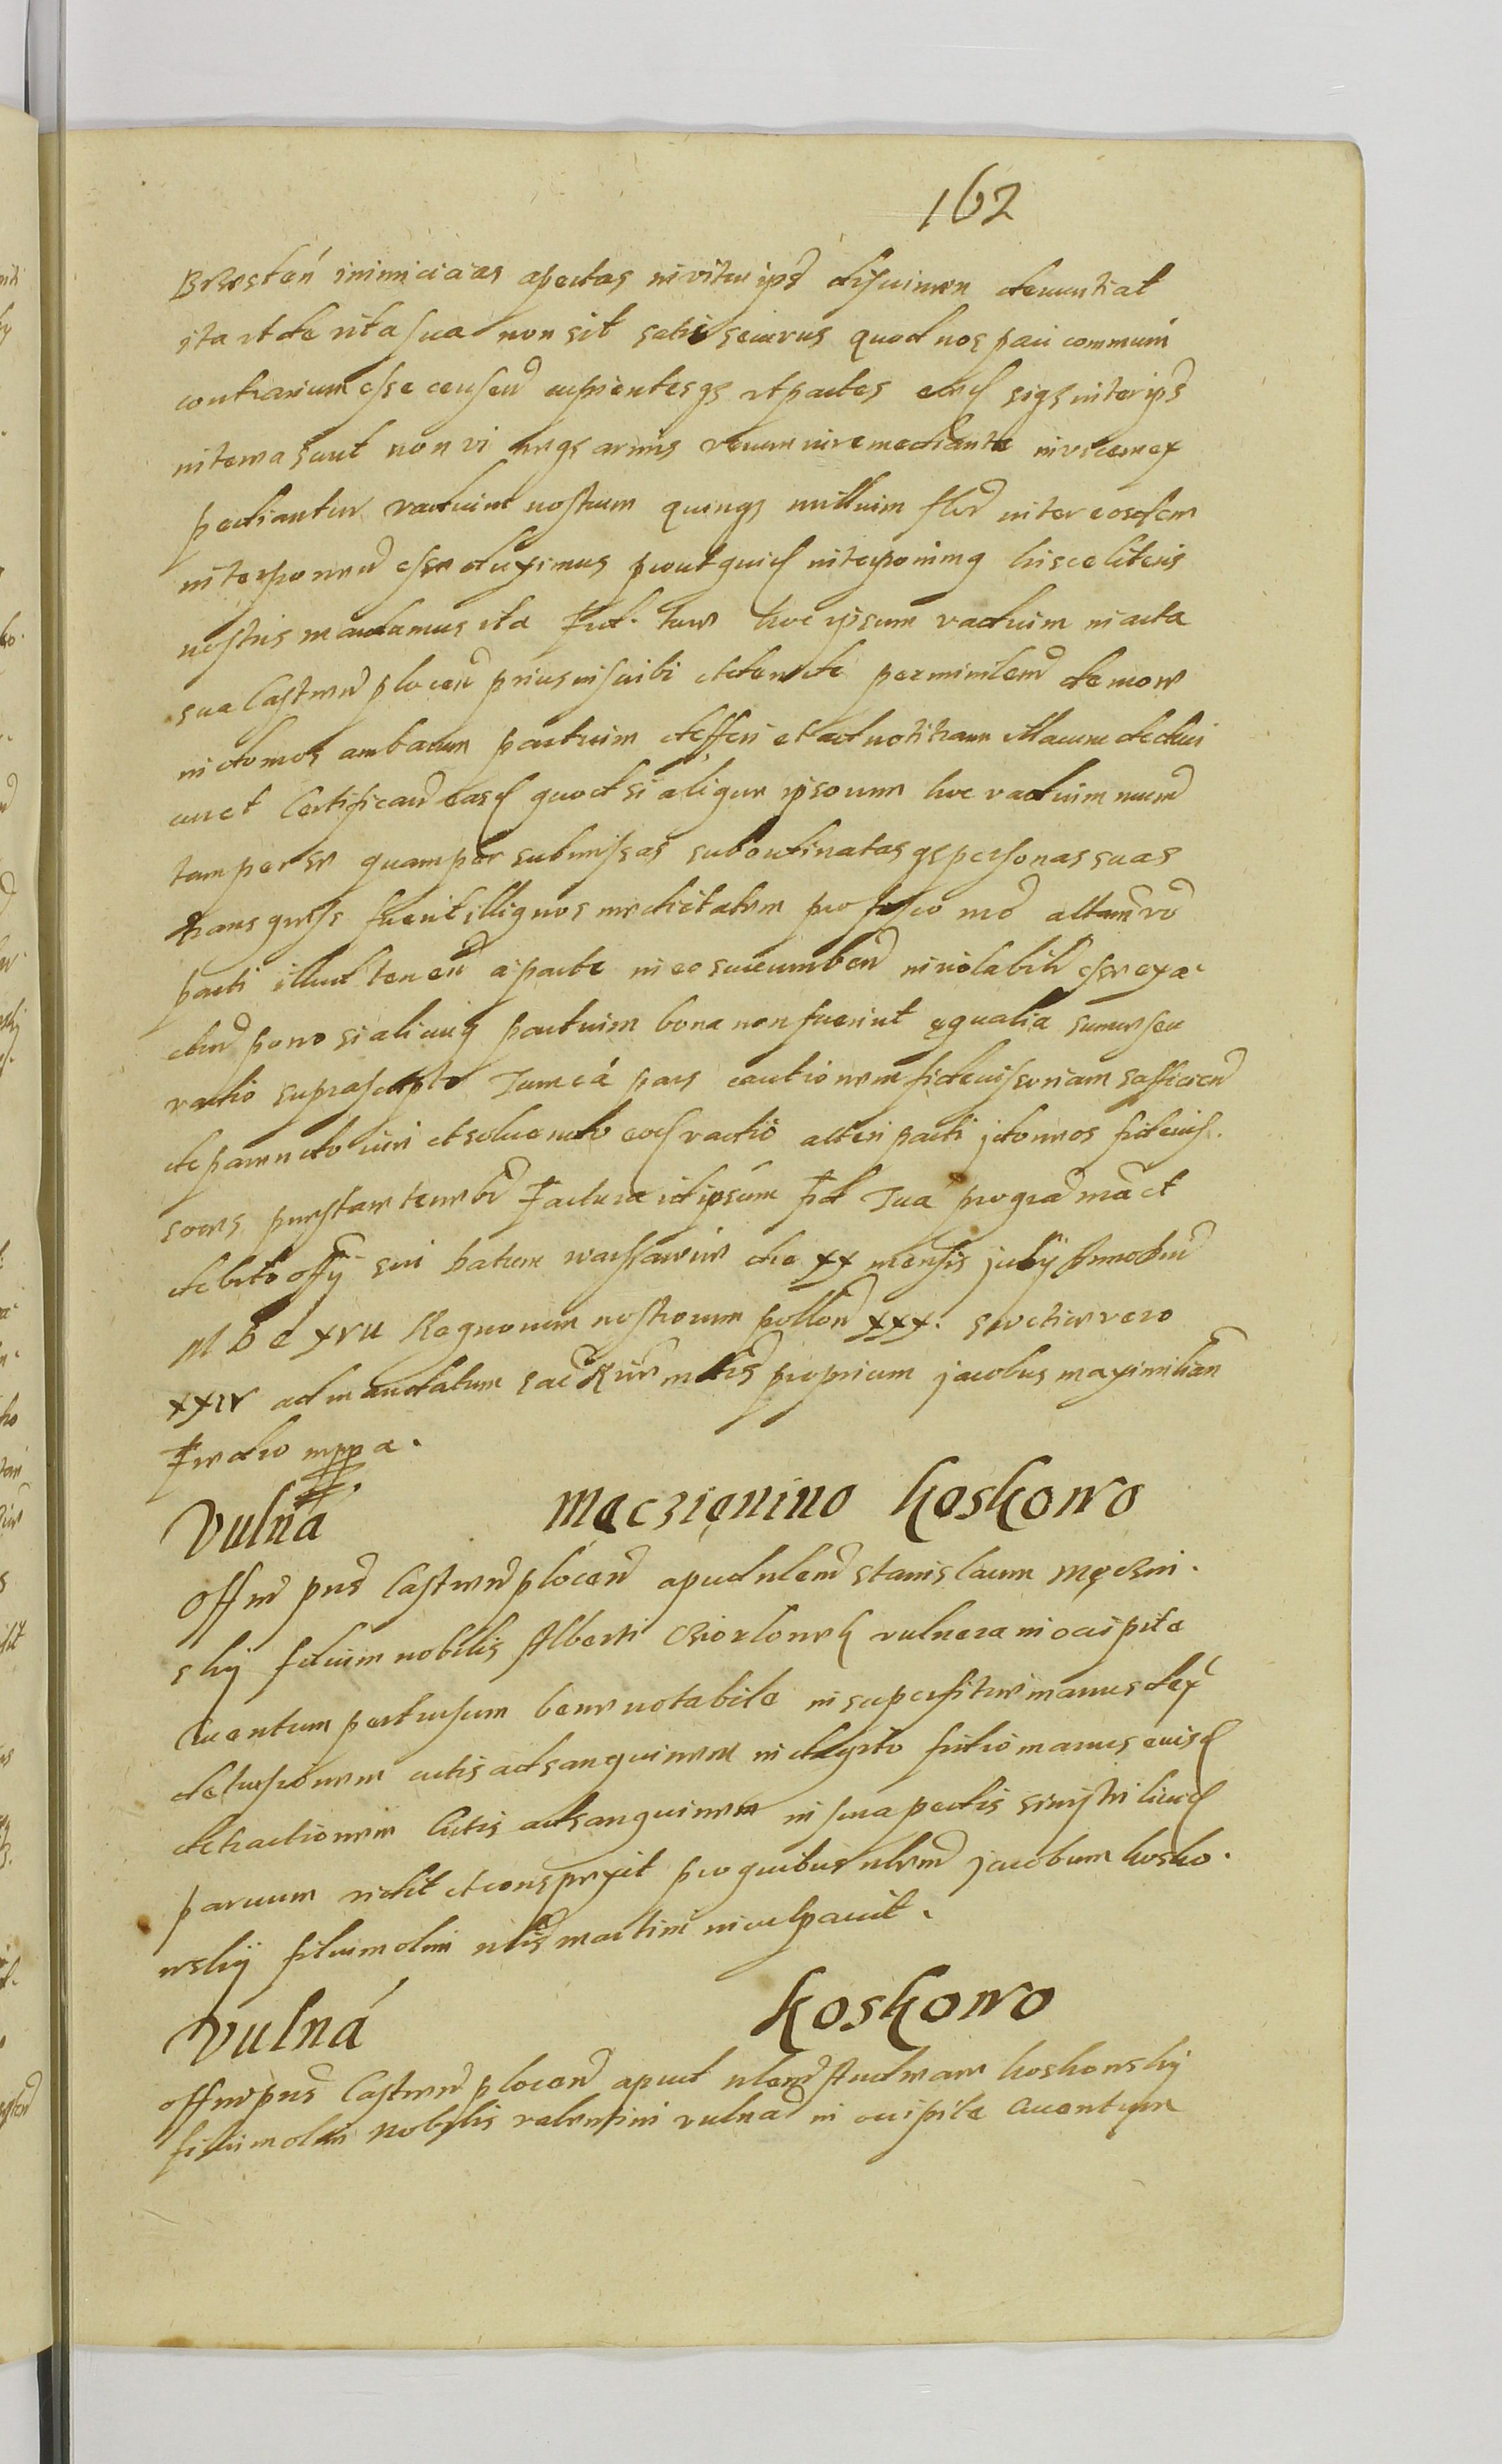 162
Brzesten inimicicias apertas vitae ipsius discrimen denuntiat
ita ut de vita sua non sit satis securus quod nos paci communi
contrarium esse censen cupientesqz ut partes eaed siqz inter ips
interea sunt non vi neqz armis verum iure mediante invicem ex
pediantur vadium nostrum quinqz millium flor inter eosdem
interponend esse duximus prout quid interponimus hisce literis
nostris mandamus ita Fid. tuae hoc ipsum vadium in acta
sua Castren plocen prius inscribi et deinde per ministem de more
in domos ambarum partium defferi et ad notitiam illarum deduci
curet Certifican easd quod si aliqua ipsorum hoc vadium nrum
tam per se quam per submissas subordinatasqz personas suas
transgressa fuerit illiquos medietatem pro fisco nro alteram vero
parti illud tenen a parte in eo succumben inviolabilit esse exa
cturi porro si alicuius partium bona non fuerint equalia summe seu
vadio suprascripto Tum ea pars cautionem fideiussoriam sufficien
de parendo iuri et solvendo eod vadio alteri parti idoneos fideius
sores praestare tenebr Factura id ipsum Fid Tua pro gra nra et
debito offy sui Datum warssaviae die XX mensis july Anno dni
M D C XVII Regnorum nostrorum pollon XXX. svetiae vero
XXIV ad mandatum sac Riae mtis proprium jacobus maximilian
Fredro mppa.
Vulna Męczienino Koskowo
Offm pns Castren plocen apud nlem stanislaum Męczin
sky filium nobilis Alberti vulnera in occipite
cruentum pertusum bene notabile in superficie manus dex
detusionem cutis ad sanguinem in digito tertio manus eiusd
detractionem Cutis ad sanguinem in sura pedis sinistri livid
parvum vidit et conspexit pro quibus nlem jacobum kosko
wsky filium olim nlis martini inculpavit.
Vulna Koskowo
offm pns Castren plocen apud nlem Andream koskowsky
filium olim Nobilis valentini vulna in occipite cruentum